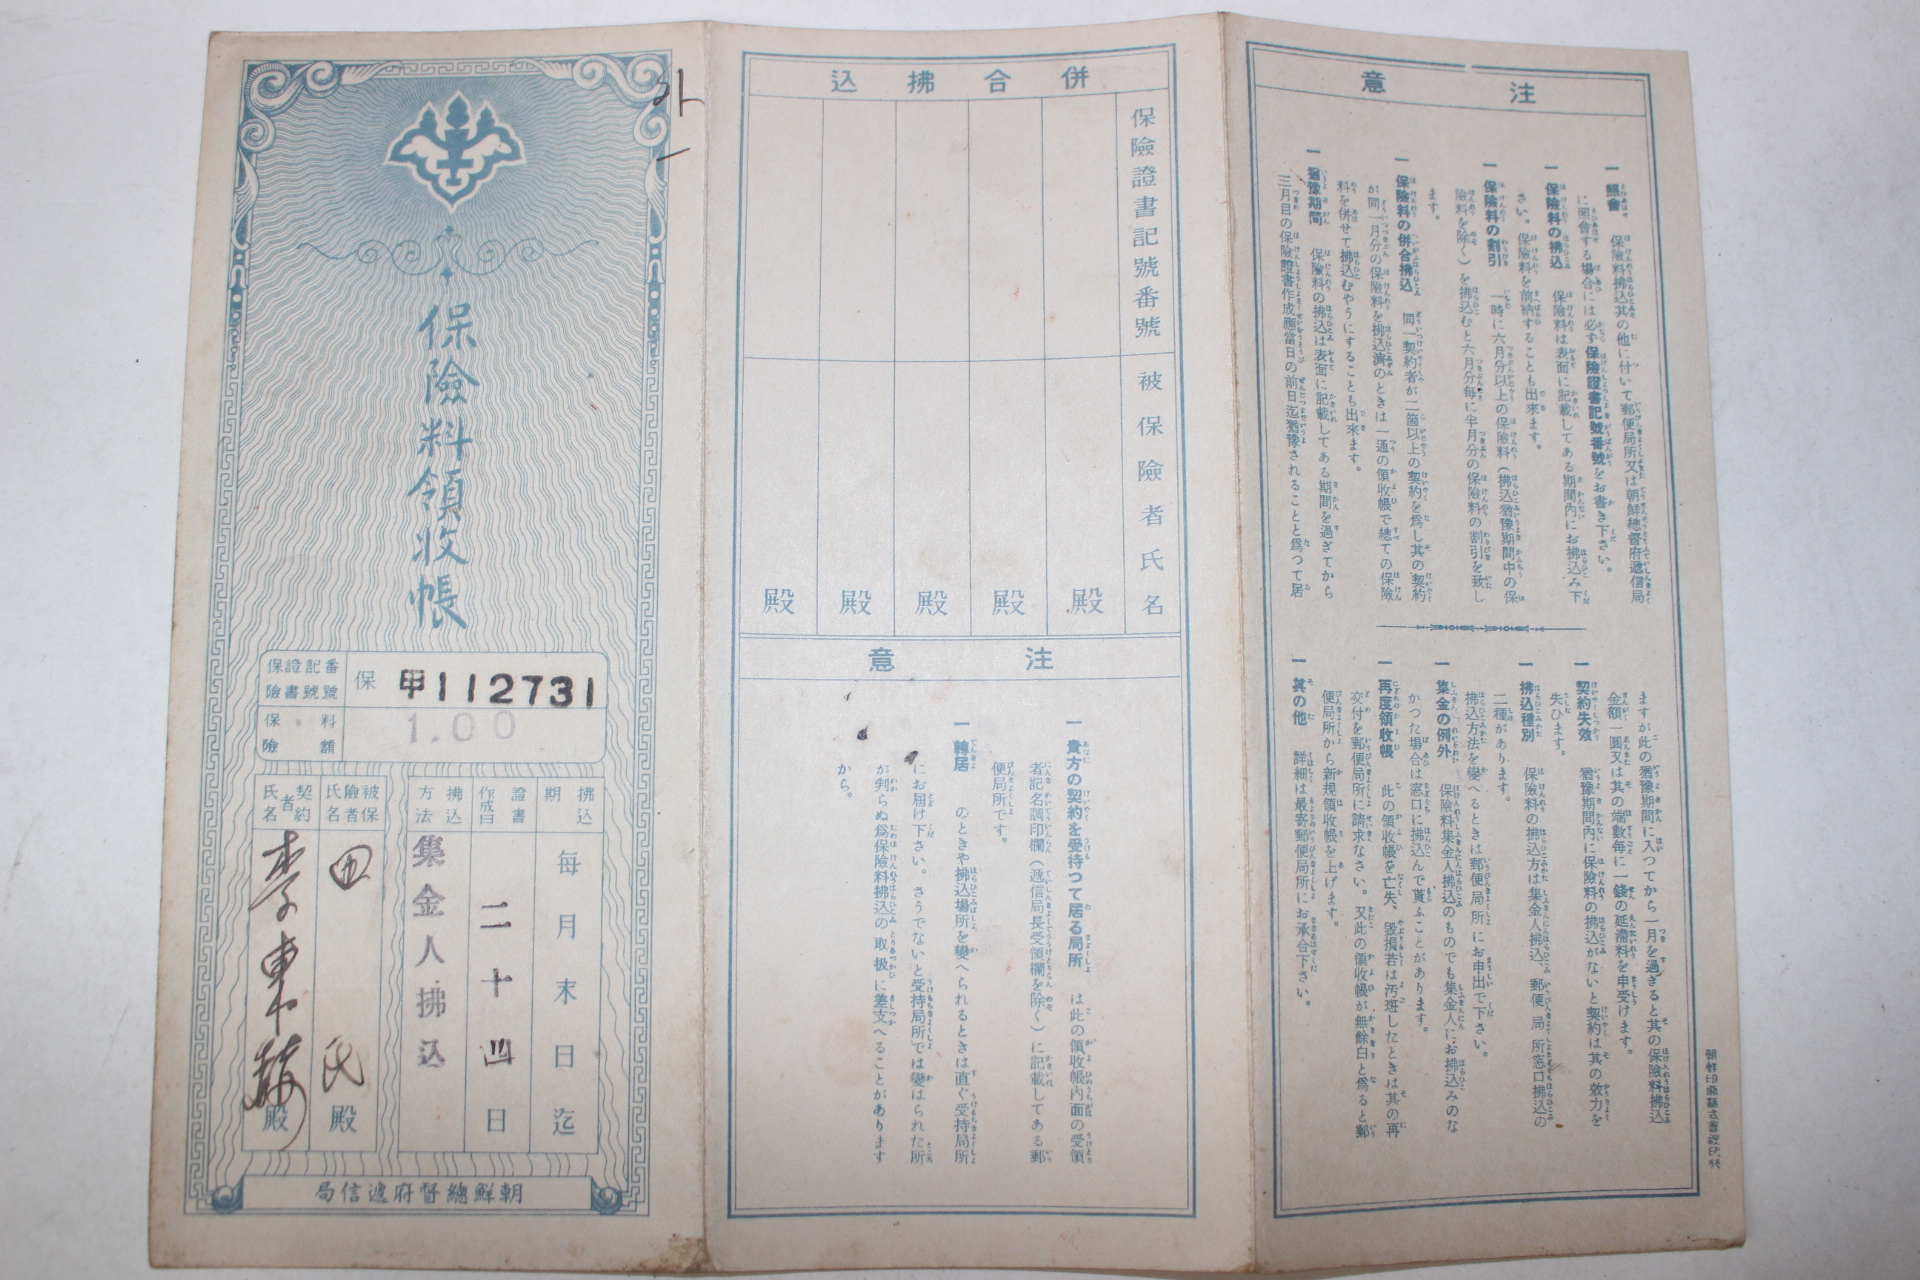 保險料領收帳
保險證書記號番號
保
甲112731
保險料額
1.00
拂込期
每月末日迄
證書作成日
二十四日
拂込方法
集金人拂込
被保險者氏名
氏
殿
契約者氏名
李東
殿
朝鮮總督府遞信局
併合拂込
保險證書記號番號
被保險者氏名
殿
殿
殿
殿
殿
注意
一 貴方の契約を受持つて居る局所 は此の領收帳內面の受領
者記名調印欄(遞信局長受領欄を除く)に記載してある郵
便局所です。
一 轉居 のときや拂込場所を變へられるときは直ぐ受持局所
にお屆け下さい。さうでないと受持局所では變はられた所
が判らぬ爲保險料拂込の取扱に差支へることがあります
から。
注意
一 照會 保險料拂込其の他に付いて郵便局所又は朝鮮總督府遞信局
に照會する場合には必ず保險證書記號番號をお書き下さい。
一 保險料の拂込 保險料は表面に記載してある期間內にお拂込み下
さい。保險料を前納することも出來ます。
一 保險料の割引 一時に六月分以上の保險料(拂込猶豫期間中の保
險料を除く)を拂込むと六月分每に半月分の保險料の割引を致し
ます。
一 保險料の併合拂込 同一契約者が二箇以上の契約を爲し其の契約
が同一月分の保險料を拂込濟のときは一通の領收帳で總ての保險
料を併せて拂込むやうにすることも出來ます。
一 猶豫期間 保險料の拂込は表面に記載してある期間を過ぎてから
三月目の保險證書作成應當日の前日迄猶豫されることと爲つて居
ますが此の猶豫期間に入つてから一月を過ぎると其の保險料拂込
金額一圓又は其の端數每に一錢の延滯料を申受けます。
一 契約失效 猶豫期間內に保險料の拂込がないと契約は其の效力を
失ひます。
一 拂込種別 保險料の拂込方は集金人拂込、郵便局所窓口拂込の
二種があります。
拂込方法を變へるときは郵便局所にお申出で下さい。
一 集金の例外 保險料集金人拂込のものでも集金人にお拂込みのな
かつた場合は窓口に拂込んで貰ふことがあります。
一 再度領收帳 此の領收帳を亡失、毀損若は汚斑したときは其の再
交付を郵便局所に請求なさい。又此の領收帳が無餘白と爲ると郵
便局所から新規領收帳を上げます。
一 其の他 詳細は最寄郵便局所にお承合下さい。
朝鮮印刷株式會社印行